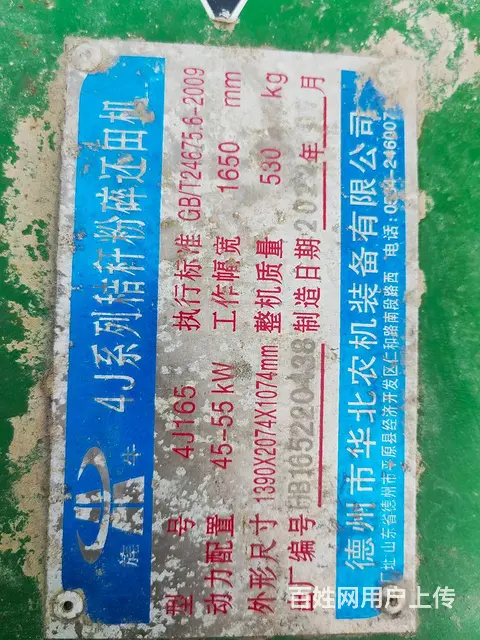 旄牛
4J系列秸秆粉碎还田机
型号 4J165 执行标准 GB/T24675.6-2009
动力配置 45-55kW 工作幅宽 1650 mm
外形尺寸 1390X2074X1074mm 整机质量 530 kg
出厂编号 HB165220438 制造日期 2022年 月
德州市华北农机装备有限公司
厂址:山东省德州市平原县经济开发区仁和路南段路西 电话:0534-246907
百姓网用户上传